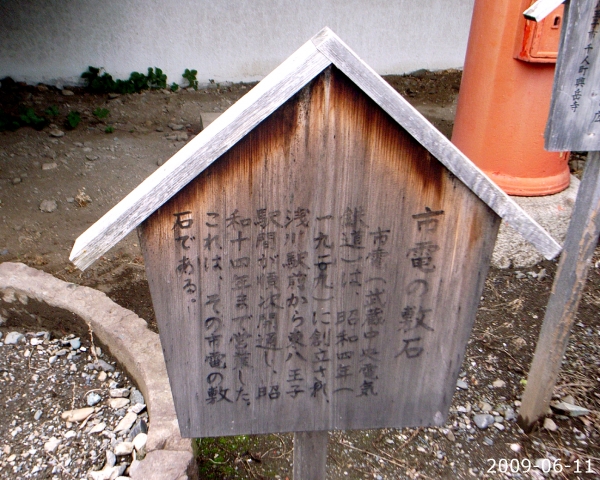 市電の敷石
市電（武蔵中央電気
鉄道）は、昭和四年（
一九二九）に創立され
浅川駅前から東八王子
駅間が順次開通し、昭
和十四年まで営業した。
これは、その市電の敷
石である。
千人町興岳寺
2009-06-11